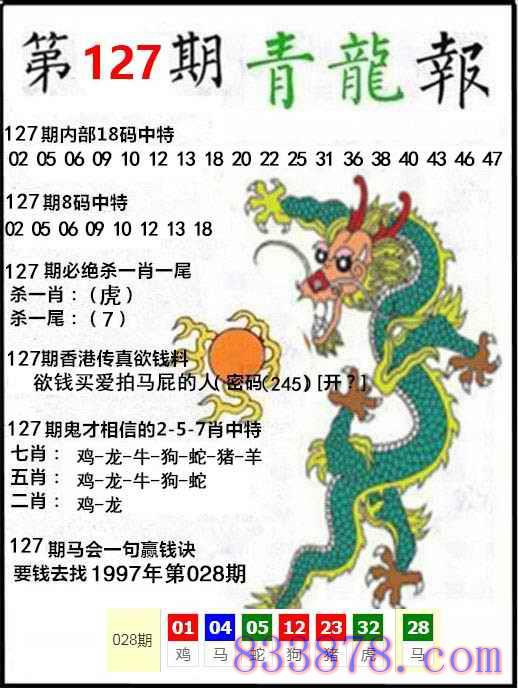 第127期青龍報
127期内部18码中特
02 05 06 09 10 12 13 18 20 22 25 31 36 38 40 43 46 47
127期8码中特
02 05 06 09 10 12 13 18
127期必绝杀一肖一尾
杀一肖：(虎)
杀一尾：(7)
127期香港传真欲钱料
欲钱买爱拍马屁的人(密码(245)[开？]
127期鬼才相信的2-5-7肖中特
七肖： 鸡-龙-牛-狗-蛇-猪-羊
五肖： 鸡-龙-牛-狗-蛇
二肖： 鸡-龙
127期马会一句赢钱诀
要钱去找1997年第028期
028期 01 04 05 12 23 32 28
鸡 马 蛇 狗 猪 虎 马
833878.com